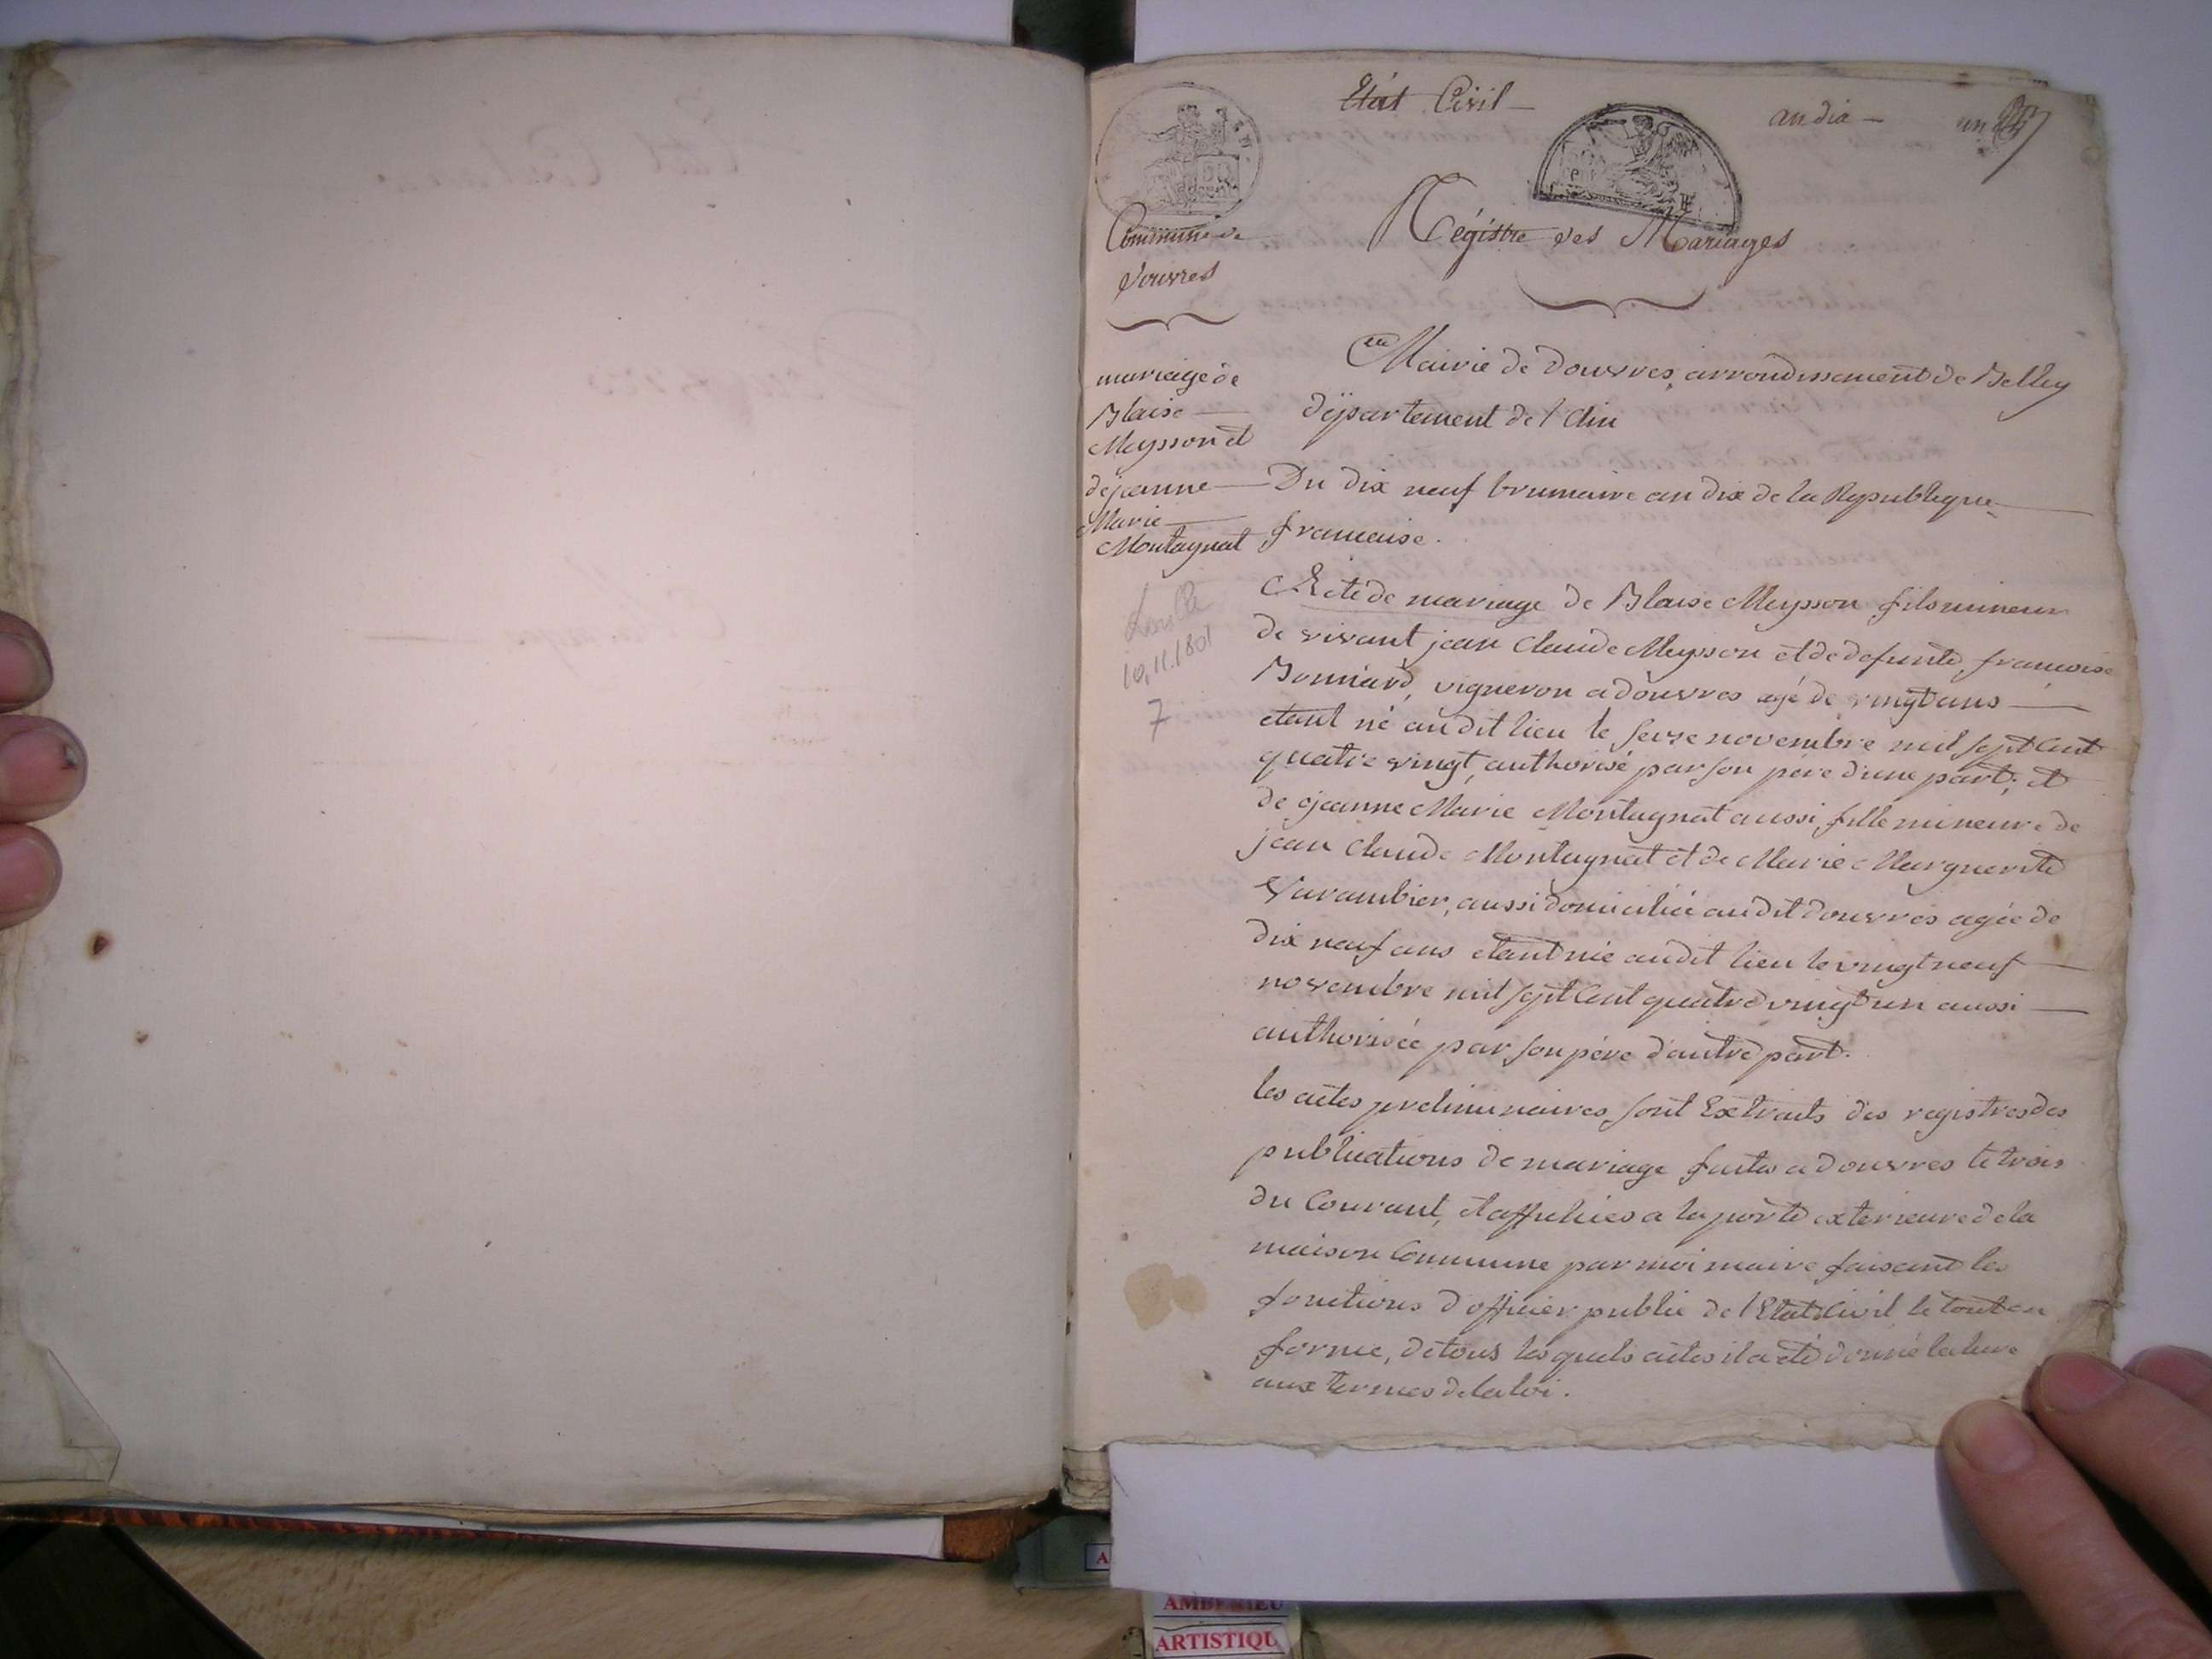 Etat Civil —
an dix —
un
Commune de
Douvres
Régistre des Mariages
mariage de
Blaise —
Meysson et
de jeanne —
Marie —
Montagnat
10.11.1801
7
Mairie de Douvres, arrondissement de Belley
département de l'Ain
Du dix neuf brumaire an dix de la Republique
francaise.
Acte de mariage de Blaise Meysson fils mineur
de vivant jean Claude Meysson et de defunte francoise
Bonniard, vigneron a douvres agé de vingt ans —
etant né au dit lieu le seize novembre mil sept Cent
quatre vingt, authorisé par son père d'une part; et
de jeanne Marie Montagnat aussi fille mineure de
jean Claude Montagnat et de Marie Marguerite
Varambier, aussi domiciliée audit douvres agée de
dix neuf ans etant née audit lieu le vingt neuf —
novembre mil sept Cent quatre vingt un aussi —
authorisée par son père d'autre part.
les actes preliminaires sont Extraits des registres des
publications de mariage faites a douvres le trois
du Courant, et affichées a la porte exterieure de la
maison Commune par moi maire faisant les
fonctions d'officier public de l'Etat Civil le tout en
forme, de tous les quels actes il a été donné lecture
aux termes de la loi.
A
AMBERIEU
ARTISTIQU